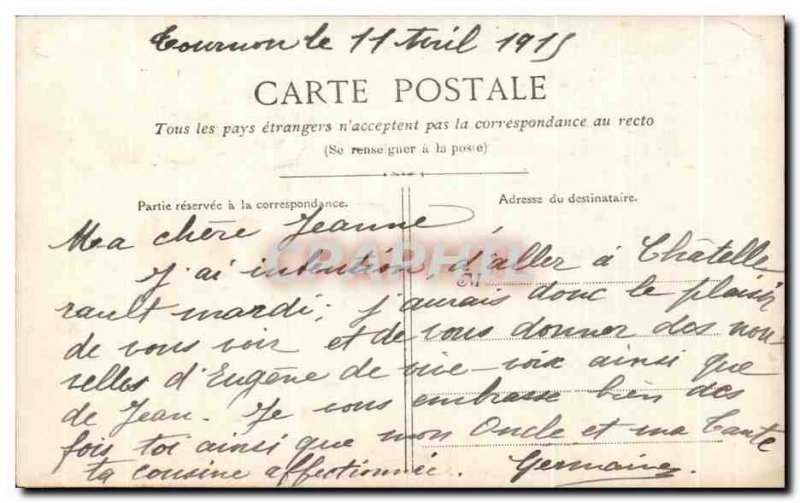 Tournon le 11 Avril 1915
CARTE POSTALE
Tous les pays étrangers n'acceptent pas la correspondance au recto
(Se renseigner à la poste)
Partie réservée à la correspondance.
Adresse du destinataire.
Ma chère Jeanne,
J'ai intention, d'aller à Châtelle
M
rault mardi; j'aurais donc le plaisir
de vous voir et de vous donner des nou-
velles d'Eugène de vive-voix ainsi que
de Jean. Je vous embrasse bien des
fois toi ainsi que mon Oncle et ma Tante
ta cousine affectionnée. Germaine
CPAPHIL